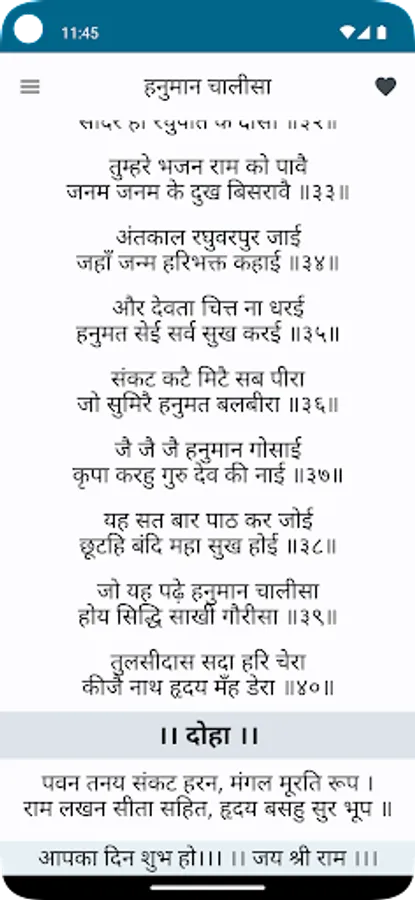 11:45
हनुमान चालीसा
तुम्हरे भजन राम को पावै
जनम जनम के दुख बिसरावै ॥३३॥
अंतकाल रघुवरपुर जाई
जहाँ जन्म हरिभक्त कहाई ॥३४॥
और देवता चित्त ना धरई
हनुमत सेई सर्व सुख करई ॥३५॥
संकट कटै मिटै सब पीरा
जो सुमिरै हनुमत बलबीरा ॥३६॥
जै जै जै हनुमान गोसाई
कृपा करहु गुरु देव की नाई ॥३७॥
यह सत बार पाठ कर जोई
छूटहि बंदि महा सुख होई ॥३८॥
जो यह पढ़े हनुमान चालीसा
होय सिद्धि साखी गौरीसा ॥३९॥
तुलसीदास सदा हरि चेरा
कीजै नाथ हृदय मँह डेरा ॥४०॥
।। दोहा ।।
पवन तनय संकट हरन, मंगल मूरति रूप ।
राम लखन सीता सहित, हृदय बसहु सुर भूप ॥
आपका दिन शुभ हो।।। ।। जय श्री राम ।।।